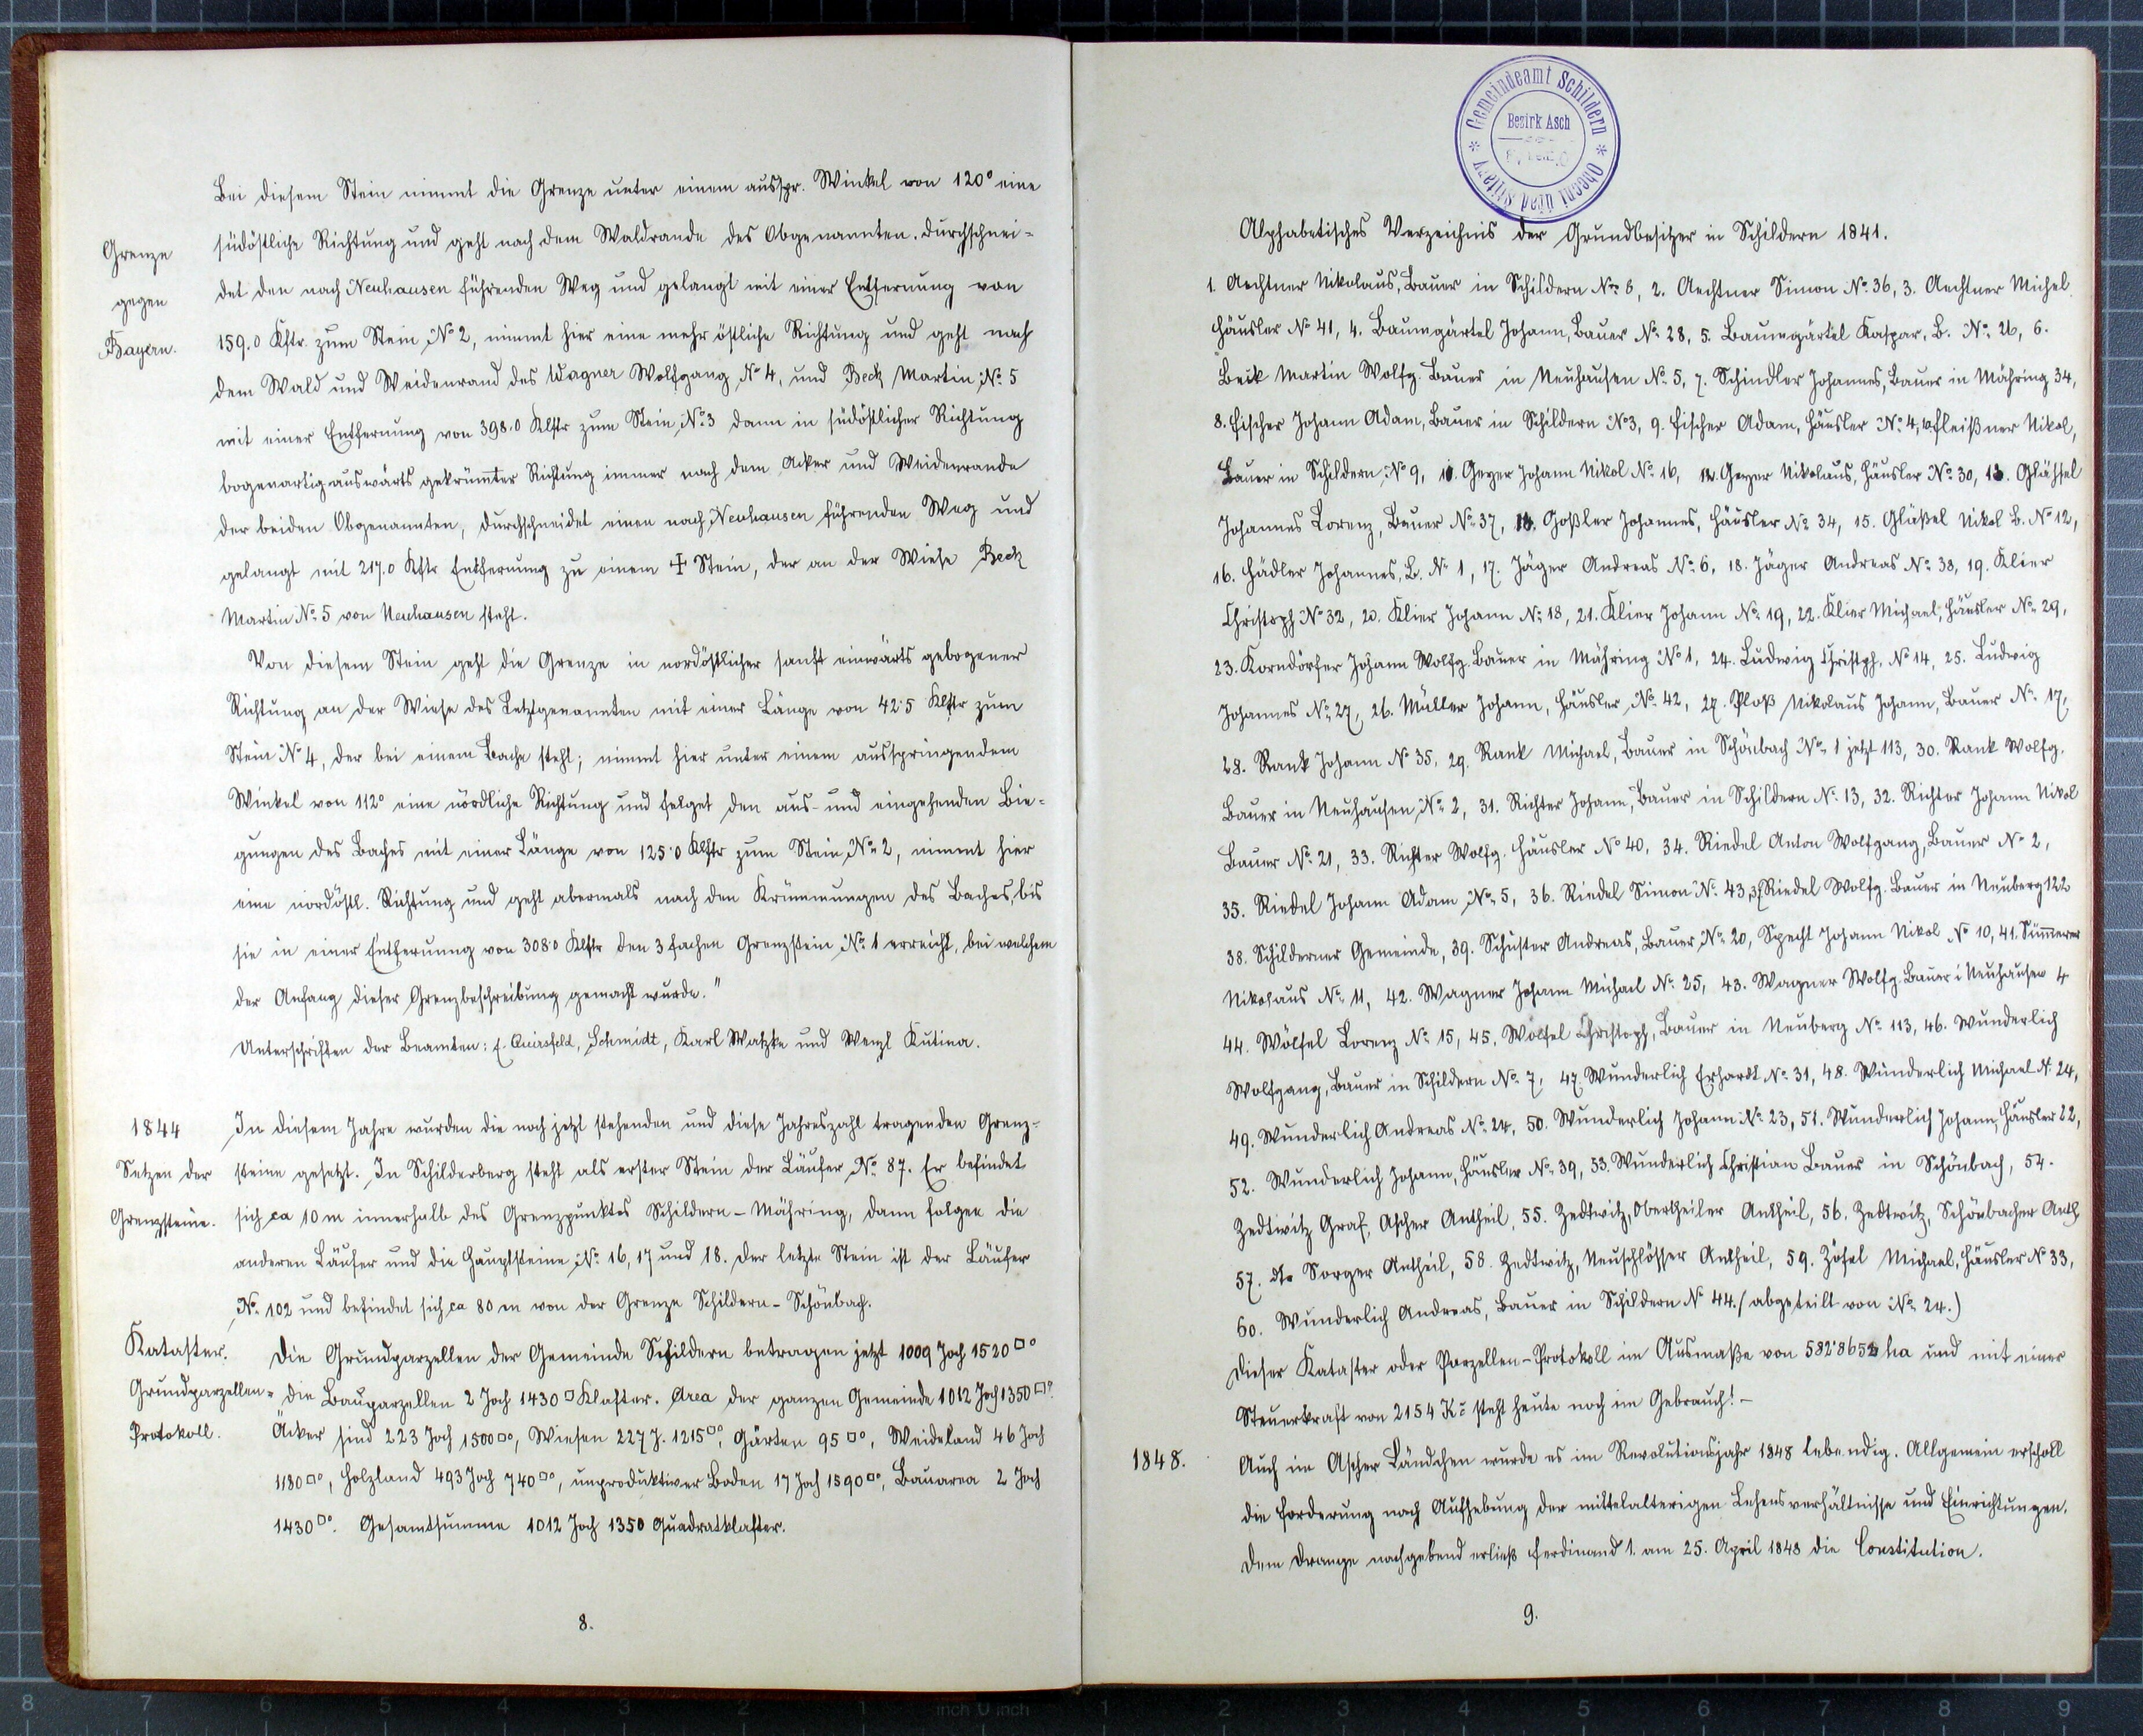 Bei diesem Stein nimmt die Grenze unter einem ausspr. Winkel von 120° eine
Grenze gegen Bayern.
südöstliche Richtung und geht nach dem Waldrande des Obgenannten. durchschnei-
det den nach Neuhausen führenden Weg und gelangt mit einer Entfernung von
159.0 Kftr. zum Stein No 2, nimmt hier eine mehr östliche Richtung und geht nach
dem Wald und Weidenrand des Wagner Wolfgang No 4, und Beck Martin No 5
mit einer Entfernung von 398.0 Klftr zum Stein No 3 dann in südöstlicher Richtung
bogenartig auswärts gekrümter Richtung immer nach dem Acker und Weidenrande
der beiden Obgenannten, durchschneidet einen nach Neuhausen führenden Weg und
gelangt mit 217.0 Kftr Entfernung zu einem ✢ Stein, der an der Wiese Beck
Martin No 5 von Neuhausen steht.
Von diesem Stein geht die Grenze in nordöstlicher sanft einwärts gebogener
Richtung an der Wiese des Letztgenannten mit einer Länge von 42.5 Klftr zum
Stein No 4, der bei einem Bache steht; nimmt hier unter einem ausspringendem
Winkel von 112° eine nördliche Richtung und folget den aus- und eingehenden Bie-
gungen des Baches mit einer Länge von 125.0 Klftr zum Stein No 2, nimmt hier
eine nordöstl. Richtung und geht abermals nach den Krümmungen des Baches, bis
sie in einer Entfernung von 308.0 Klftr den 3 fachen Grenzstein No 1 erreicht, bei welchem
der Anfang dieser Grenzbeschreibung gemacht wurde."
Unterschriften der Beamten: E. Quirsfeld, Schmidt, Karl Watzke und Wenzl Kutina.
1844
Setzen der Grenzsteine.
In diesem Jahre wurden die noch jetzt stehenden und diese Jahreszahl tragenden Grenz-
steine gesetzt. In Schilderberg steht als erster Stein der Läufer No 87. Er befindet
sich ca 10 m innerhalb des Grenzpunktes Schildern - Mähring, dann folgen die
anderen Läufer und die Hauptsteine No 16, 17 und 18. Der letzte Stein ist der Läufer
No 102 und befindet sich ca 80 m von der Grenze Schildern - Schönbach.
Kataster.
Grundparzellen-
Protokoll.
Die Grundparzellen der Gemeinde Schildern betragen jetzt 1009 Joch 1520 □°
die Bauparzellen 2 Joch 1430 □ Klafter. Area der ganzen Gemeinde 1012 Joch 1350 □°.
Äcker sind 223 Joch 1500 □°, Wiesen 227 J. 1215 □°, Gärten 95 □°, Weideland 46 Joch
1180 □°, Holzland 493 Joch 740 □°, unproduktiver Boden 17 Joch 1590 □°, Bauarea 2 Joch
1430 □°. Gesamtsumme 1012 Joch 1350 Quadratklafter.
8.
Gemeindeamt Schildern
Bezirk Asch
Obecní úřad Štítary
Alphabetisches Verzeichnis der Grundbesitzer in Schildern 1841.
1. Aechtner Nikolaus, Bauer in Schildern No 6, 2. Aechtner Simon No 36, 3. Aechtner Michel
Häusler No 41, 4. Baumgärtel Johann, Bauer No 28, 5. Baumgärtel Kaspar, B. No 26, 6.
Beik Martin Wolfg. Bauer in Neuhausen No 5, 7. Schindler Johannes, Bauer in Mähring 34,
8. Fischer Johann Adam, Bauer in Schildern No 3, 9. Fischer Adam, Häusler No 4, 10. Fleißner Nikol,
Bauer in Schildern No 9, 11. Geyer Johann Nikol No 16, 12. Geyer Nikolaus, Häusler No 30, 13. Glässel
Johannes Lorenz, Bauer No 37, 14. Goßler Johannes, Häusler No 34, 15. Gläßel Nikol B. No 12,
16. Hädler Johannes, B. No 1, 17. Jäger Andreas No 6, 18. Jäger Andreas No 38, 19. Klier
Christoph No 32, 20. Klier Johann No 18, 21. Klier Johann No 19, 22. Klier Michael, Häusler No 29,
23. Korndörfer Johann Wolfg. Bauer in Mähring No 1, 24. Ludwig Christph. No 14, 25. Ludwig
Johannes No 27, 26. Müller Johann, Häusler No 42, 27. Ploß Nikolaus Johann, Bauer No 17,
28. Rank Johann No 35, 29. Rank Michael, Bauer in Schönbach No 1 jetzt 113, 30. Rank Wolfg.
Bauer in Neuhausen No 2, 31. Richter Johann, Bauer in Schildern No 13, 32. Richter Johann Nikol
Bauer No 21, 33. Richter Wolfg. Häusler No 40, 34. Riedel Anton Wolfgang, Bauer No 2,
35. Riedel Johann Adam No 5, 36. Riedel Simon No 43, 37. Riedel Wolfg. Bauer in Neuberg 122
38. Schilderner Gemeinde, 39. Schuster Andreas, Bauer No 20, Specht Johann Nikol No 10, 41. Sümerer
Nikolaus No 11, 42. Wagner Johann Michael No 25, 43. Wagner Wolfg. Bauer i Neuhausen 4
44. Wölfel Lorenz No 15, 45. Wölfel Christoph, Bauer in Neuberg No 113, 46. Wunderlich
Wolfgang, Bauer in Schildern No 7, 47. Wunderlich Erhardt No 31, 48. Wunderlich Michael N. 24,
49. Wunderlich Andreas No 24, 50. Wunderlich Johann No 23, 51. Wunderlich Johann, Häusler 22,
52. Wunderlich Johann, Häusler No 39, 53. Wunderlich Christian Bauer in Schönbach, 54.
Zedtwitz Graf, Ascher Antheil, 55. Zedtwitz, Obertheiler Antheil, 56. Zedtwitz, Schönbacher Anth.
57. dto Sorger Antheil, 58. Zedtwitz, Neuschlösser Antheil, 59. Zöfel Michael, Häusler No 33,
60. Wunderlich Andreas, Bauer in Schildern No 44. (abgeteilt von No 24.)
Dieser Kataster oder Parzellen-Protokoll im Ausmaße von ha und mit einer
Steuerkraft von 2154 K steht heute noch im Gebrauch! -
1848.
Auch im Ascher Ländchen wurde es im Revolutionsjahr 1848 lebendig. Allgemein erscholl
die Forderung nach Aufhebung der mittelalterigen Lehensverhältnisse und Einrichtungen.
Dem Drange nachgebend erließ Ferdinand 1. am 25. April 1848 die Constitution.
9.